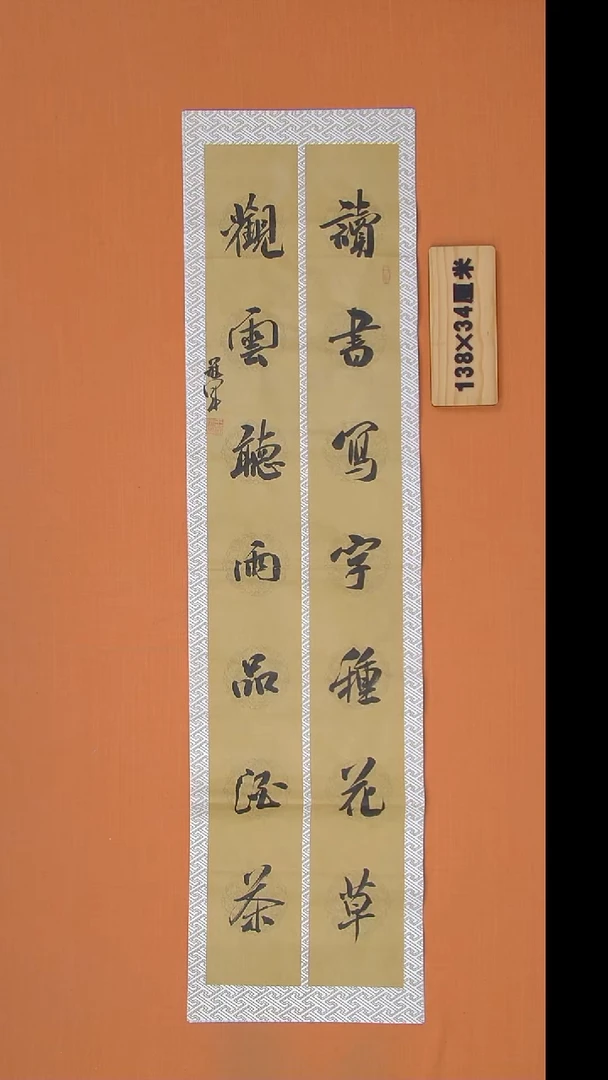 讀書寫字種花草
觀雲聽雨品酒茶
138X34厘米